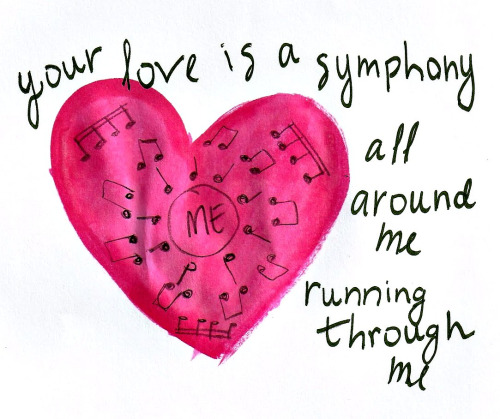 your love is a symphony
all
around
me
running
through
me
ME